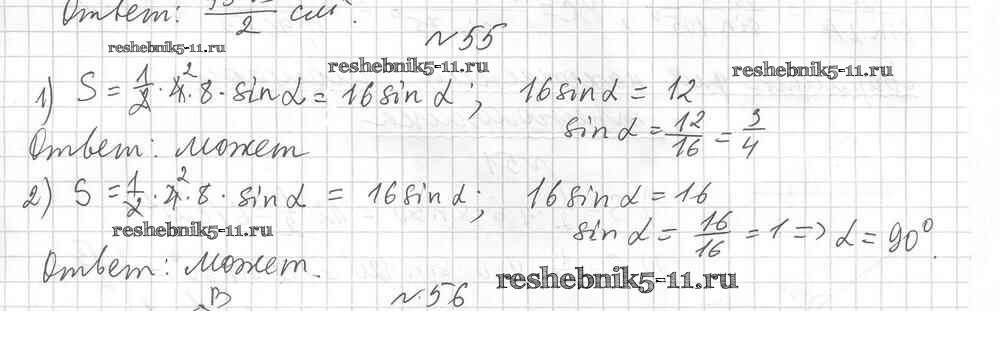 Ответ: 2 см².
№55
reshebnik5-11.ru
reshebnik5-11.ru
reshebnik5-11.ru
1) S = 1/2 · 4² · 8 · sin α = 16 sin α; 16 sin α = 12
sin α = 12/16 = 3/4
Ответ: может
2) S = 1/2 · 4² · 8 · sin α = 16 sin α; 16 sin α = 16
sin α = 16/16 = 1 => α = 90°.
reshebnik5-11.ru
Ответ: может.
reshebnik5-11.ru
B
№56